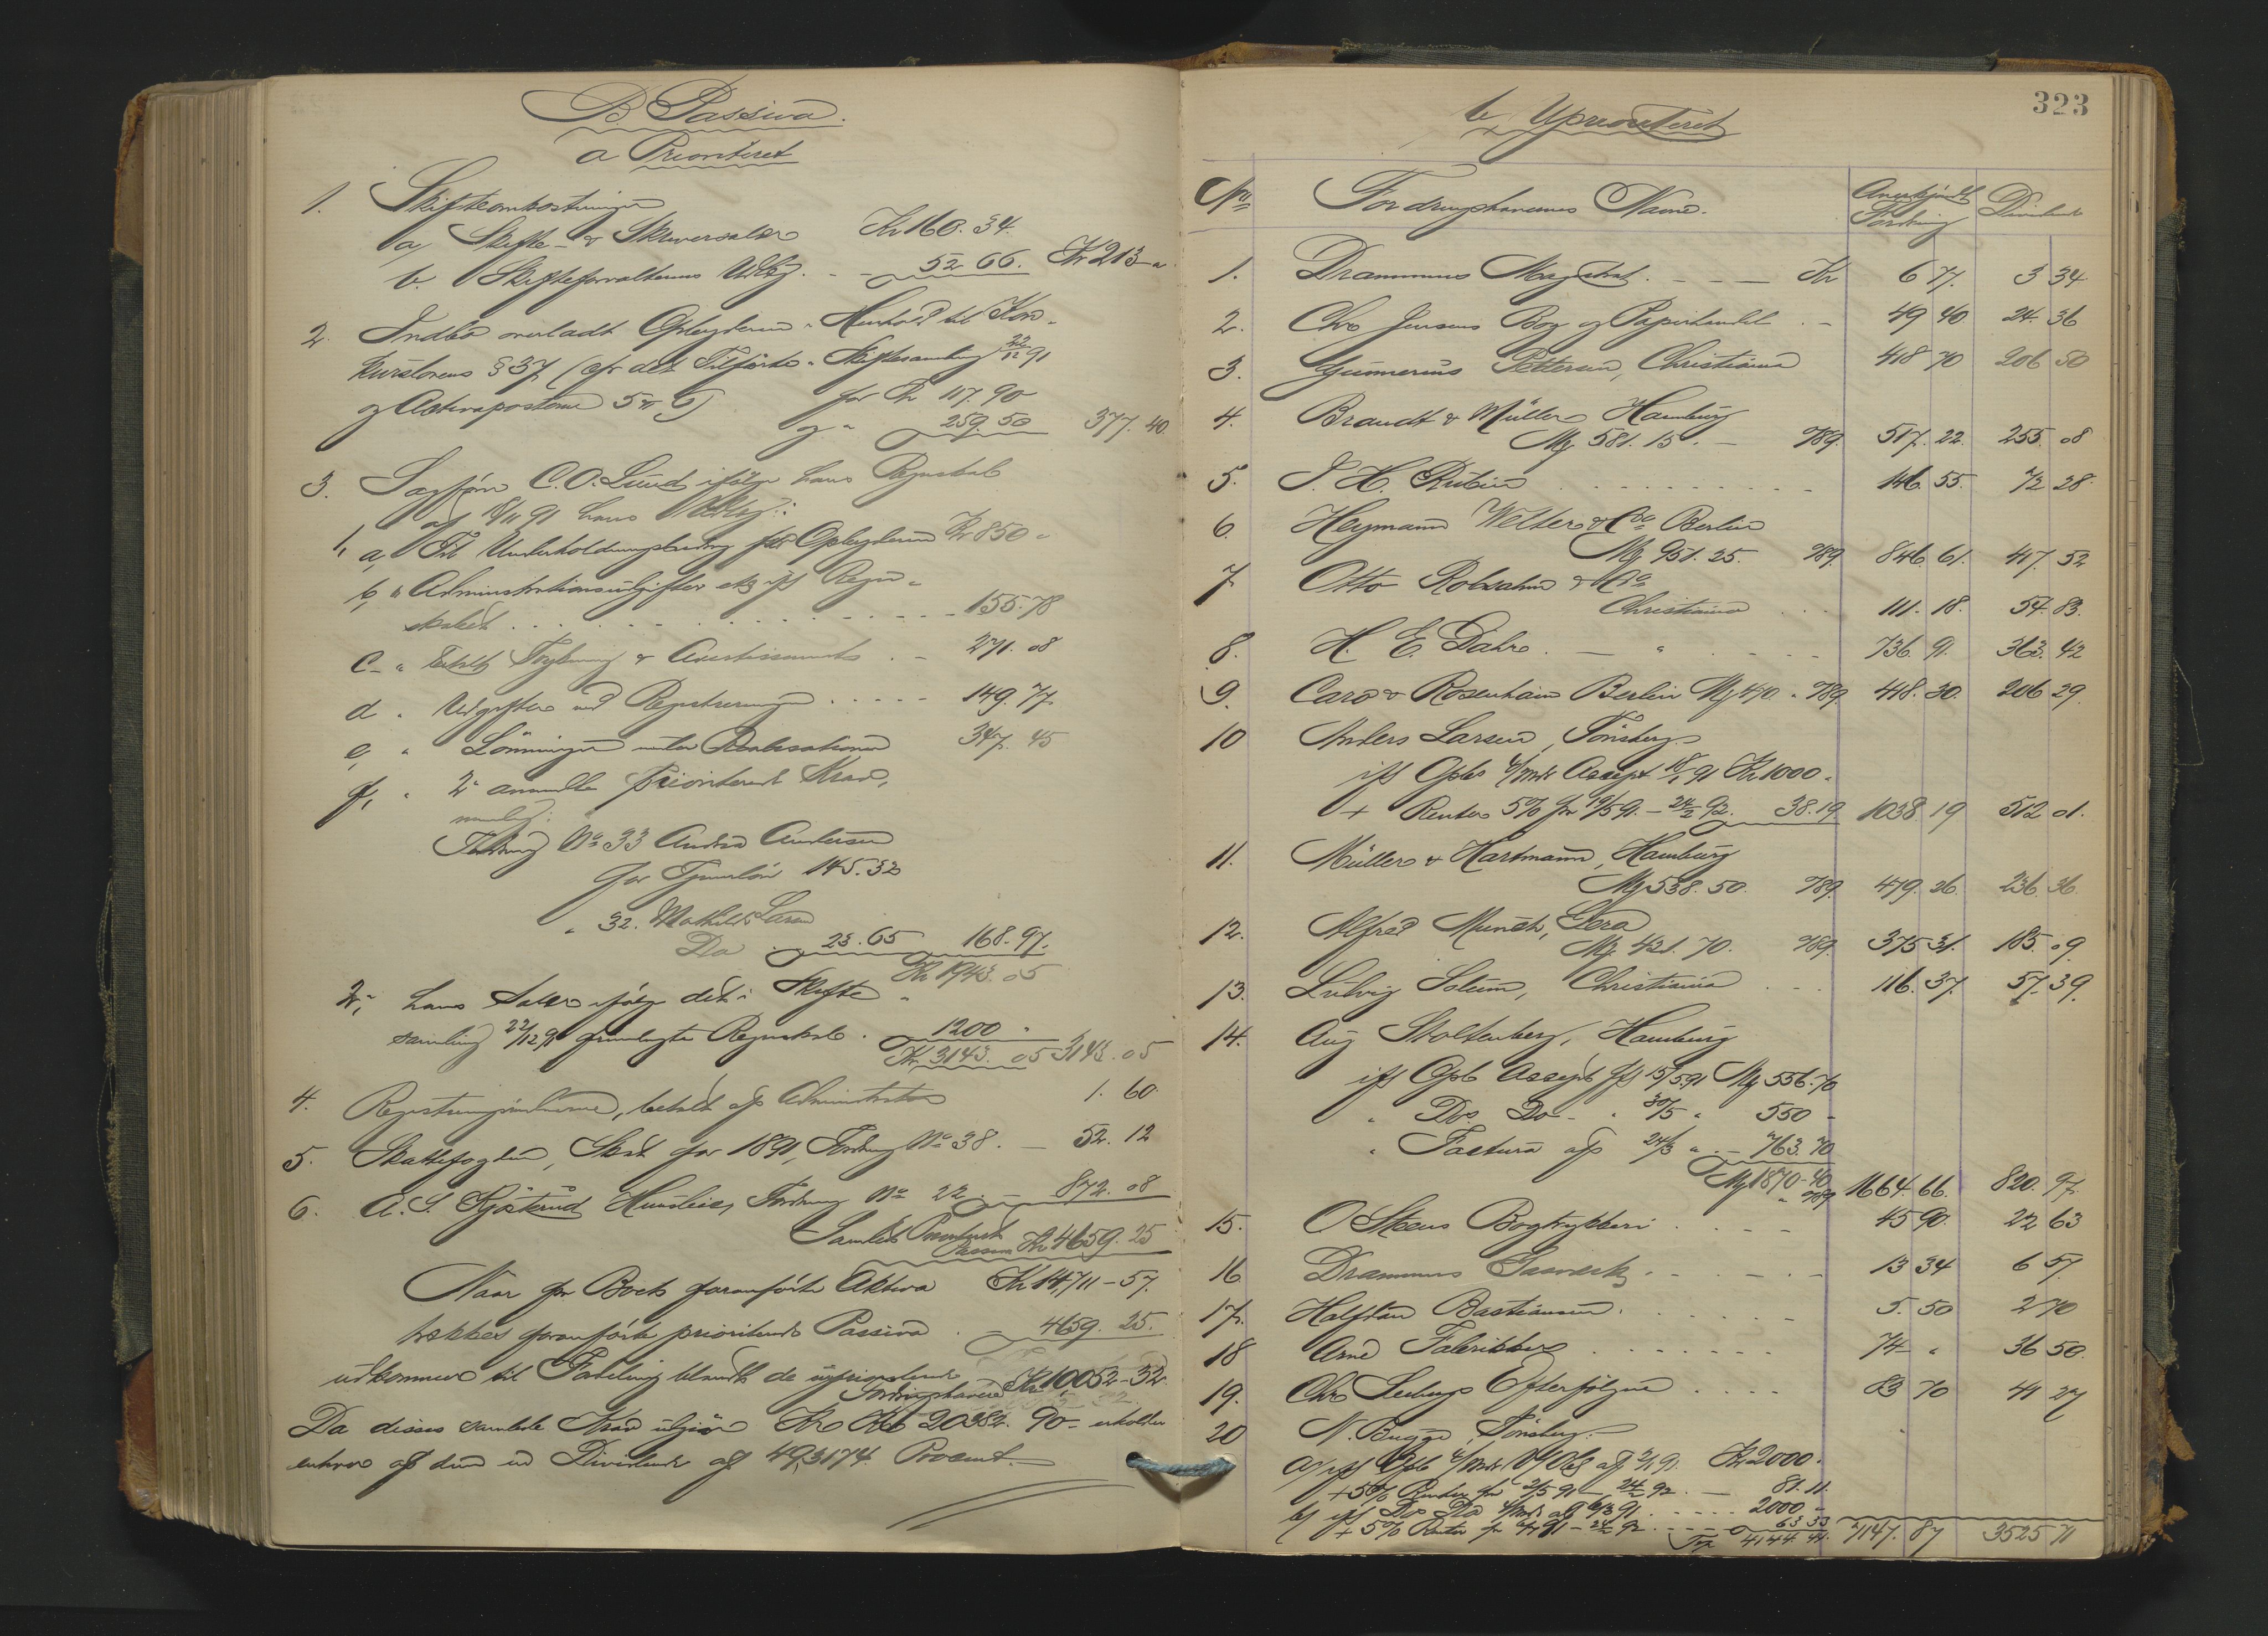 B. Passiva.
a Prioriteret
1. Skifteomkostninger
a, Skifte- & Skriversalær Kr 160.34.
b. Skifteforvalterens Udlæg. - 52 66. Kr 213 "
2. Indbo overladt Opbyderen i Henhold til Kon-
kurslovens § 37 (cfr det Tilførte i Skiftesamling 22/12 91
og Activaposterne 5 & 6) for Kr 117.90
og " 259.50 377.40.
3. Sagfører C.O. Lund ifølge hans Regnskab
af 18/11 91 hans Udlæg:
1, a, Til Underholdningsbidrag for Opbyderen Kr 850 "
b, " Administrationsudgifter etc ifl Regn-
skabet - 155.78
c - " betalt Toldning & Avertissements - 271.08
d " Udgifter ved Registreringen 149.77
e, " Lönninger under Realisationen 347.45
f, " 2 anmeldte prioriterede Krav,
nemlig:
Fordring No 33 Andrea Andersen
for Tjenerløn 145.32
" 32. Mathilde Larsen
Do 23.65 168.97.
Kr 1943.05
2, hans Salær ifølge det i Skifte-
samling 22/12 91 fremlagte Regnskab. 1200 "
Kr. 3143.05 3143.05
4. Registreringsmændene, betalt af Administrator 1.60
5. Skattefogden, Skat for 1891, Fordring No 38. - 52.12
6. A. S. Kjøsterud Husleie, Fordring No 22 - 872.08
Samlet Prioriteret
Passiva Kr 4659.25
Naar fra Boets foranførte Aktiva Kr 14,711-57.
trækkes foranførte prioriterede Passiva - 4659.25.
udkommer til Fordeling blandt de uprioriterede
Fordringshavere Kr 10052-32
Da disses samlede Krav udgjør Kr 20382.90 - erholder
enhver af dem en Dividende af 49,3174 Procent.
323
b, Uprioriteret
No Fordringshavernes Navne. Anerkjendt Fordring Dividende
1. Drammens Magistrat. Kr 6 77. 3 34
2. Chr Jensens Bog og Papirhandel - 49 40 24.36
3. Gunnerius Pettersen, Christiania 418 70 206 50
4. Brandt & Müller Hamburg
Mk 581.15. - 789. 517.22. 255.08
5. J. H. Rubien 146.55. 72 28.
6. Heymann Welter & Co Berlin
Mk 951.25. 789. 846.61. 417.52
7. Otto Robsahm & Co
Christiania 111.18. 54.83.
8. H. E. Dahr. - " 736.91. 363.42
9. Caro & Rosenhain Berlin Mk 470. " 789 418.30. 206 29.
10 Anders Larsen, Tönsberg
ifl Opbs 4/Mdr Accept 18/1 91 Kr 1000 "
+ Renter 5% fra 19/5 91 - 24/2 92. 38.19 1038.19 512 01.
11. Müller & Hartmann, Hamburg
Mk 538.50. 789. 479.26. 236.36
12. Alfred Munch, Gera
Mk 421.70. 789. 375 31. 185.09.
13. Ludvig Solum, Christiania 116.37. 57.39.
14. Aug Stoltenberg, Hamburg
ifl Opb Accept pr 15/5 91 Mk 556.70
" Do. Do - " 30/5 " 550 -
" Factura af 24/3 " - 763.70
Mk 1870.40
" 789 1664.66. 820.97.
15. O Steens Bogtrykkeri 45 90. 22 63
16 Drammens Gasværk 13 34 6 57
17. Halfdan Bastiansen. 5.50 2 70
18 Arne Fabritius 74 " 36 50.
19. Chr Seebergs Efterfølgere 83 70 41 27
20 N. Bugge, Tönsberg
a, ifl Opb 4/Mdr Obl af 2/1 91. Kr 2000.
+ 5% Renter fra 2/5 91 - 24/2 92. - 81.11.
b, ifl Do Do 4/Mdr af 6/3 91 2000 -
+ 5% Renter fr 6/7 91 - 24/2 92 63 33
Tr 4144 44. 7147.87 3525 71